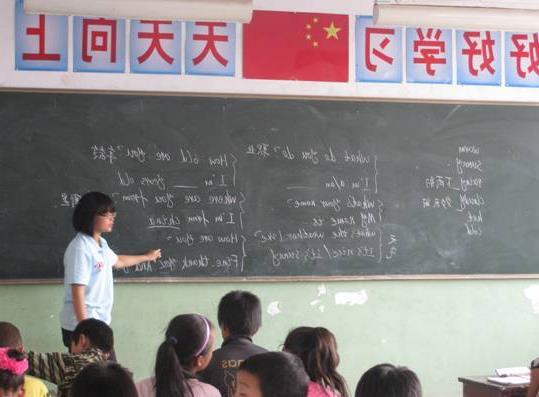 好好学习 天天向上
warm
sunny
rainy 下雨的
cloudy 多云的
hot
cold
What do you do? 职业
I'm a/an
What's your name?
My name is
What's the weather like? 天气
It's nice / it's sunny
How old are you? 年龄
I'm ____ years old
Where are you from?
I'm from china
How are you?
Fine, thank you. And